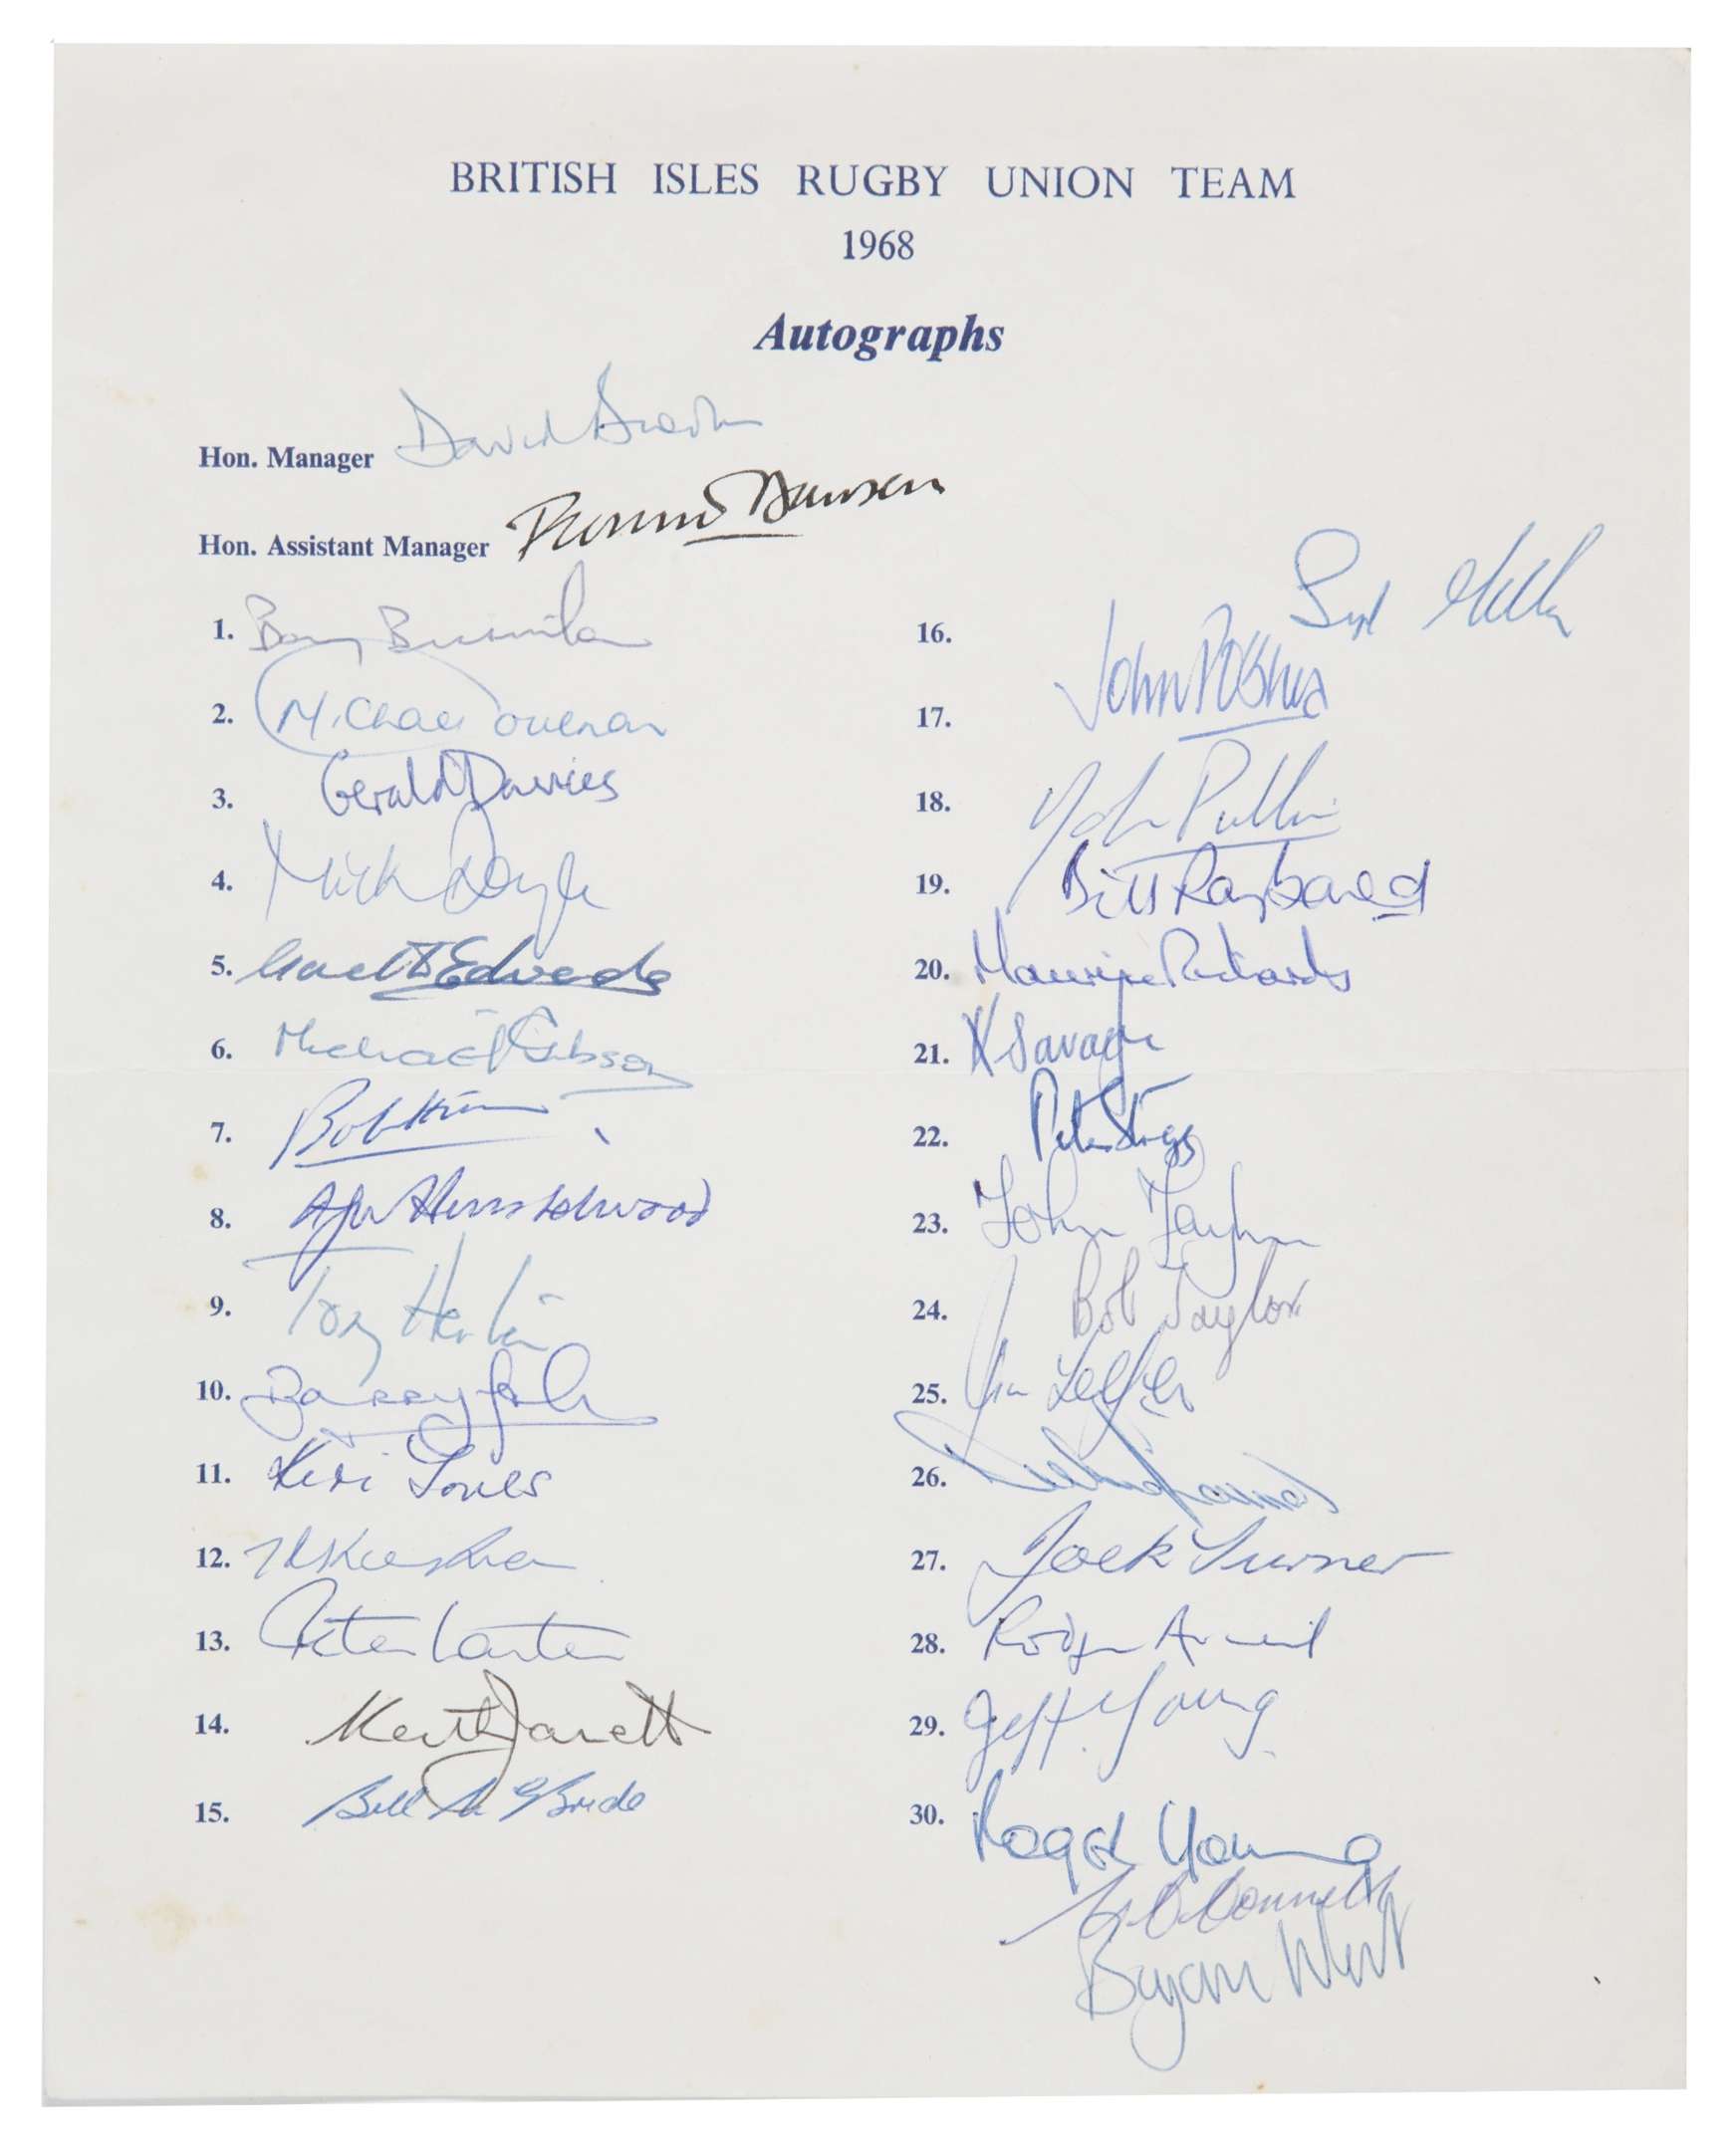 BRITISH ISLES RUGBY UNION TEAM
1968
Autographs
Hon. Manager David Brooks
Hon. Assistant Manager Ronnie Dawson
1. Barry Bresnihan
2. Michael Coulman
3. Gerald Davies
4. Mick Doyle
5. Gareth Edwards
6. Michael Gibson
7. Bob Hiller
8. Hinshelwood
9. Tony Horton
10. Barry John
11. Keri Jones
12. Kiernan
13. Peter Larter
14. Keith Jarrett
15. Bill McBride
16. Syd Millar
17. John O'Shea
18. John Pullin
19. Bill Raybould
20. Maurice Richards
21. K Savage
22. Peter Stagg
23. John Taylor
24. Bob Taylor
25. Jim Telfer
26.
27. Jock Turner
28. Rodger Arneil
29. Jeff Young
30. Roger Young
Connell
Bryan West